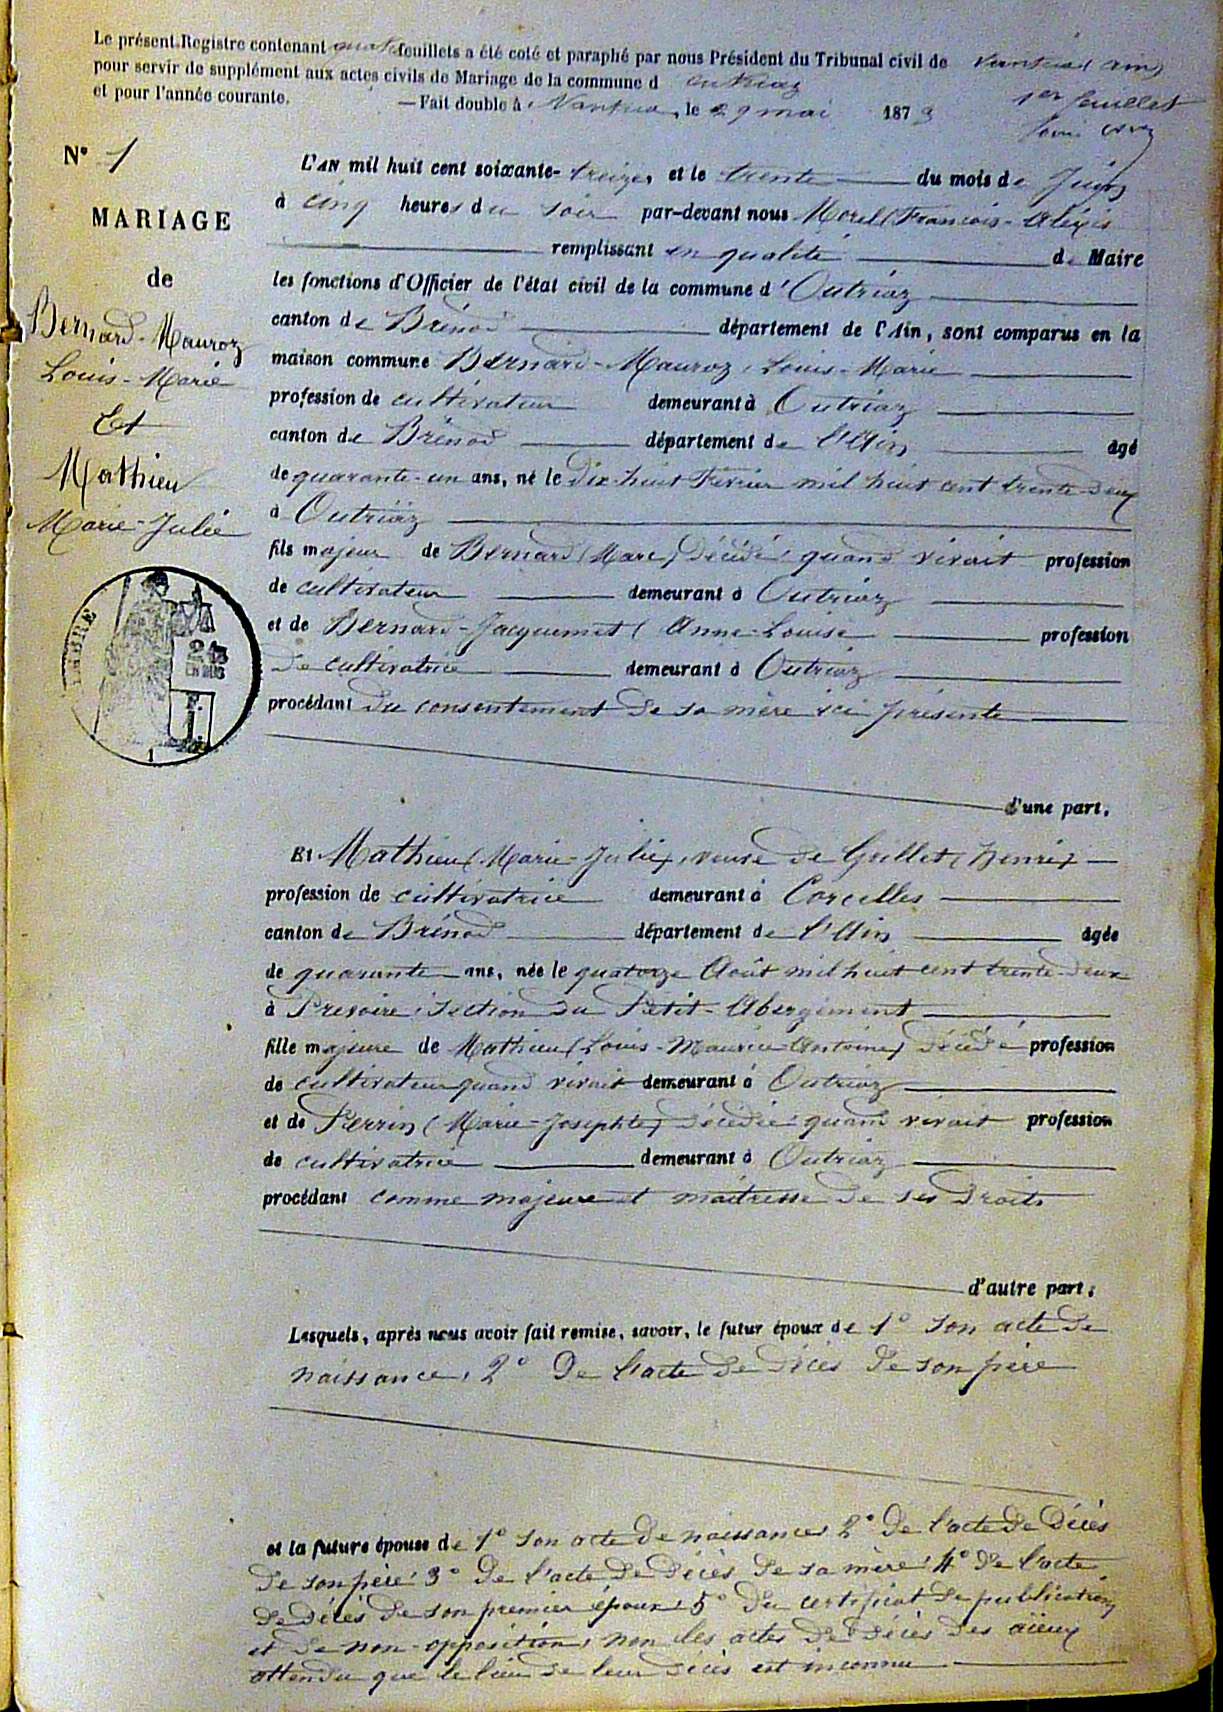 Le présent Registre contenant quatre feuillets a été coté et paraphé par nous Président du Tribunal civil de Nantua (ain)
pour servir de supplément aux actes civils de Mariage de la commune d outriaz
et pour l'année courante. — Fait double à Nantua, le 29 mai 1873
1er feuillet
N° 1
MARIAGE
de
Bernard-Mauroz
Louis-Marie
Et
Mathieu
Marie-Julie
TIMBRE
L'AN mil huit cent soixante-treize, et le trente du mois de Juin
à cinq heures du soir par-devant nous Morel (François-Alexis
remplissant en qualité de Maire
les fonctions d'Officier de l'état civil de la commune d'Outriaz
canton de Brénod département de l'Ain, sont comparus en la
maison commune Bernard-Mauroz, Louis-Marie
profession de cultivateur demeurant à Outriaz
canton de Brénod département de l'Ain âgé
de quarante-un ans, né le dix-huit Février mil huit cent trente-deux
à Outriaz
fils majeur de Bernard (Marc) décédé, quand vivait profession
de cultivateur demeurant à Outriaz
et de Bernard-Jacquemet (Anne-Louise profession
de cultivatrice demeurant à Outriaz
procédant du consentement de sa mère ici présente
d'une part.
Et Mathieu (Marie-Julie), veuve de Gullet (henri)
profession de cultivatrice demeurant à Corcelles
canton de Brénod département de l'Ain âgée
de quarante ans, née le quatorze Août mil huit cent trente-deux
à section du Petit-Abergement
fille majeure de Mathieu (Louis-Maurice-Antoine) décédé profession
de cultivateur quand vivait demeurant à Outriaz
et de Perrin (Marie-Josephte) décédée quand vivait profession
de cultivatrice demeurant à Outriaz
procédant comme majeure et maîtresse de ses droits
d'autre part;
Lesquels, après nous avoir fait remise, savoir, le futur époux de 1° son acte de
naissance, 2° De l'acte de décès de son père
et la future épouse de 1° son acte de naissance, 2° de l'acte de décès
de son père, 3° de l'acte de décès de sa mère, 4° de l'acte
de décès de son premier époux, 5° du certificat de publications
et de non-opposition, non les actes de décès des aïeux
attendu que le lieu de leur décès est inconnu